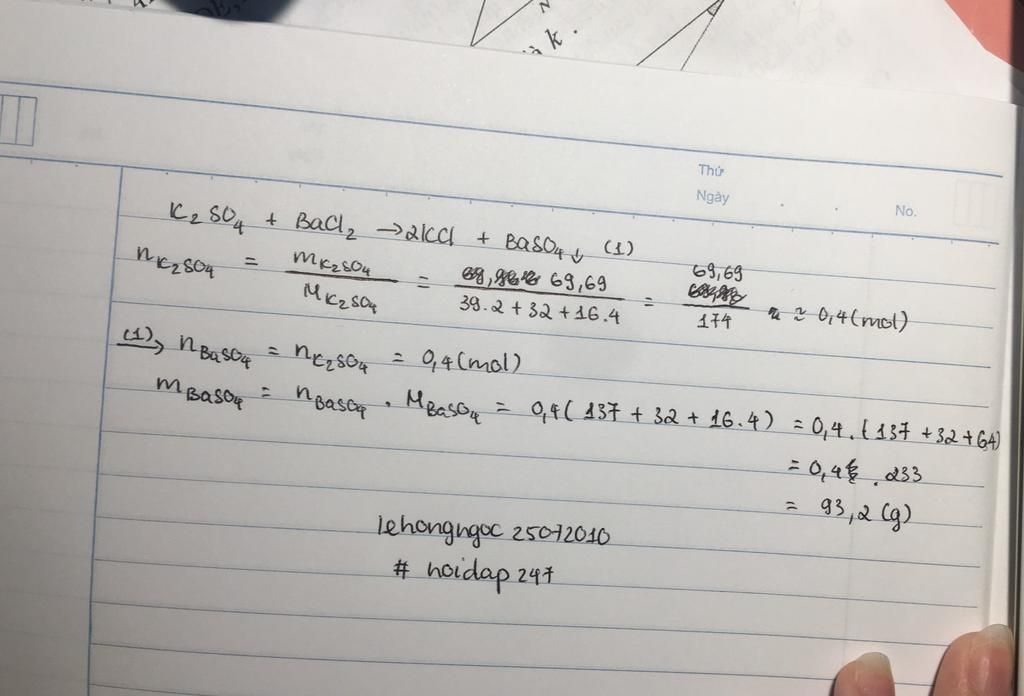 N
à k.
Thứ
Ngày
No.
K₂SO₄ + BaCl₂ → 2KCl + BaSO₄↓ (1)
n K₂SO₄ = m K₂SO₄ / M K₂SO₄ = 69,69 / 39.2 + 32 + 16.4 = 69,69 / 174 ≈ 0,4 (mol)
(1) → n BaSO₄ = n K₂SO₄ = 0,4 (mol)
m BaSO₄ = n BaSO₄ . M BaSO₄ = 0,4 ( 137 + 32 + 16.4 ) = 0,4. (137 + 32 + 64)
= 0,4 . 233
= 93,2 (g)
lehongngoc 25072010
# hoidap 247